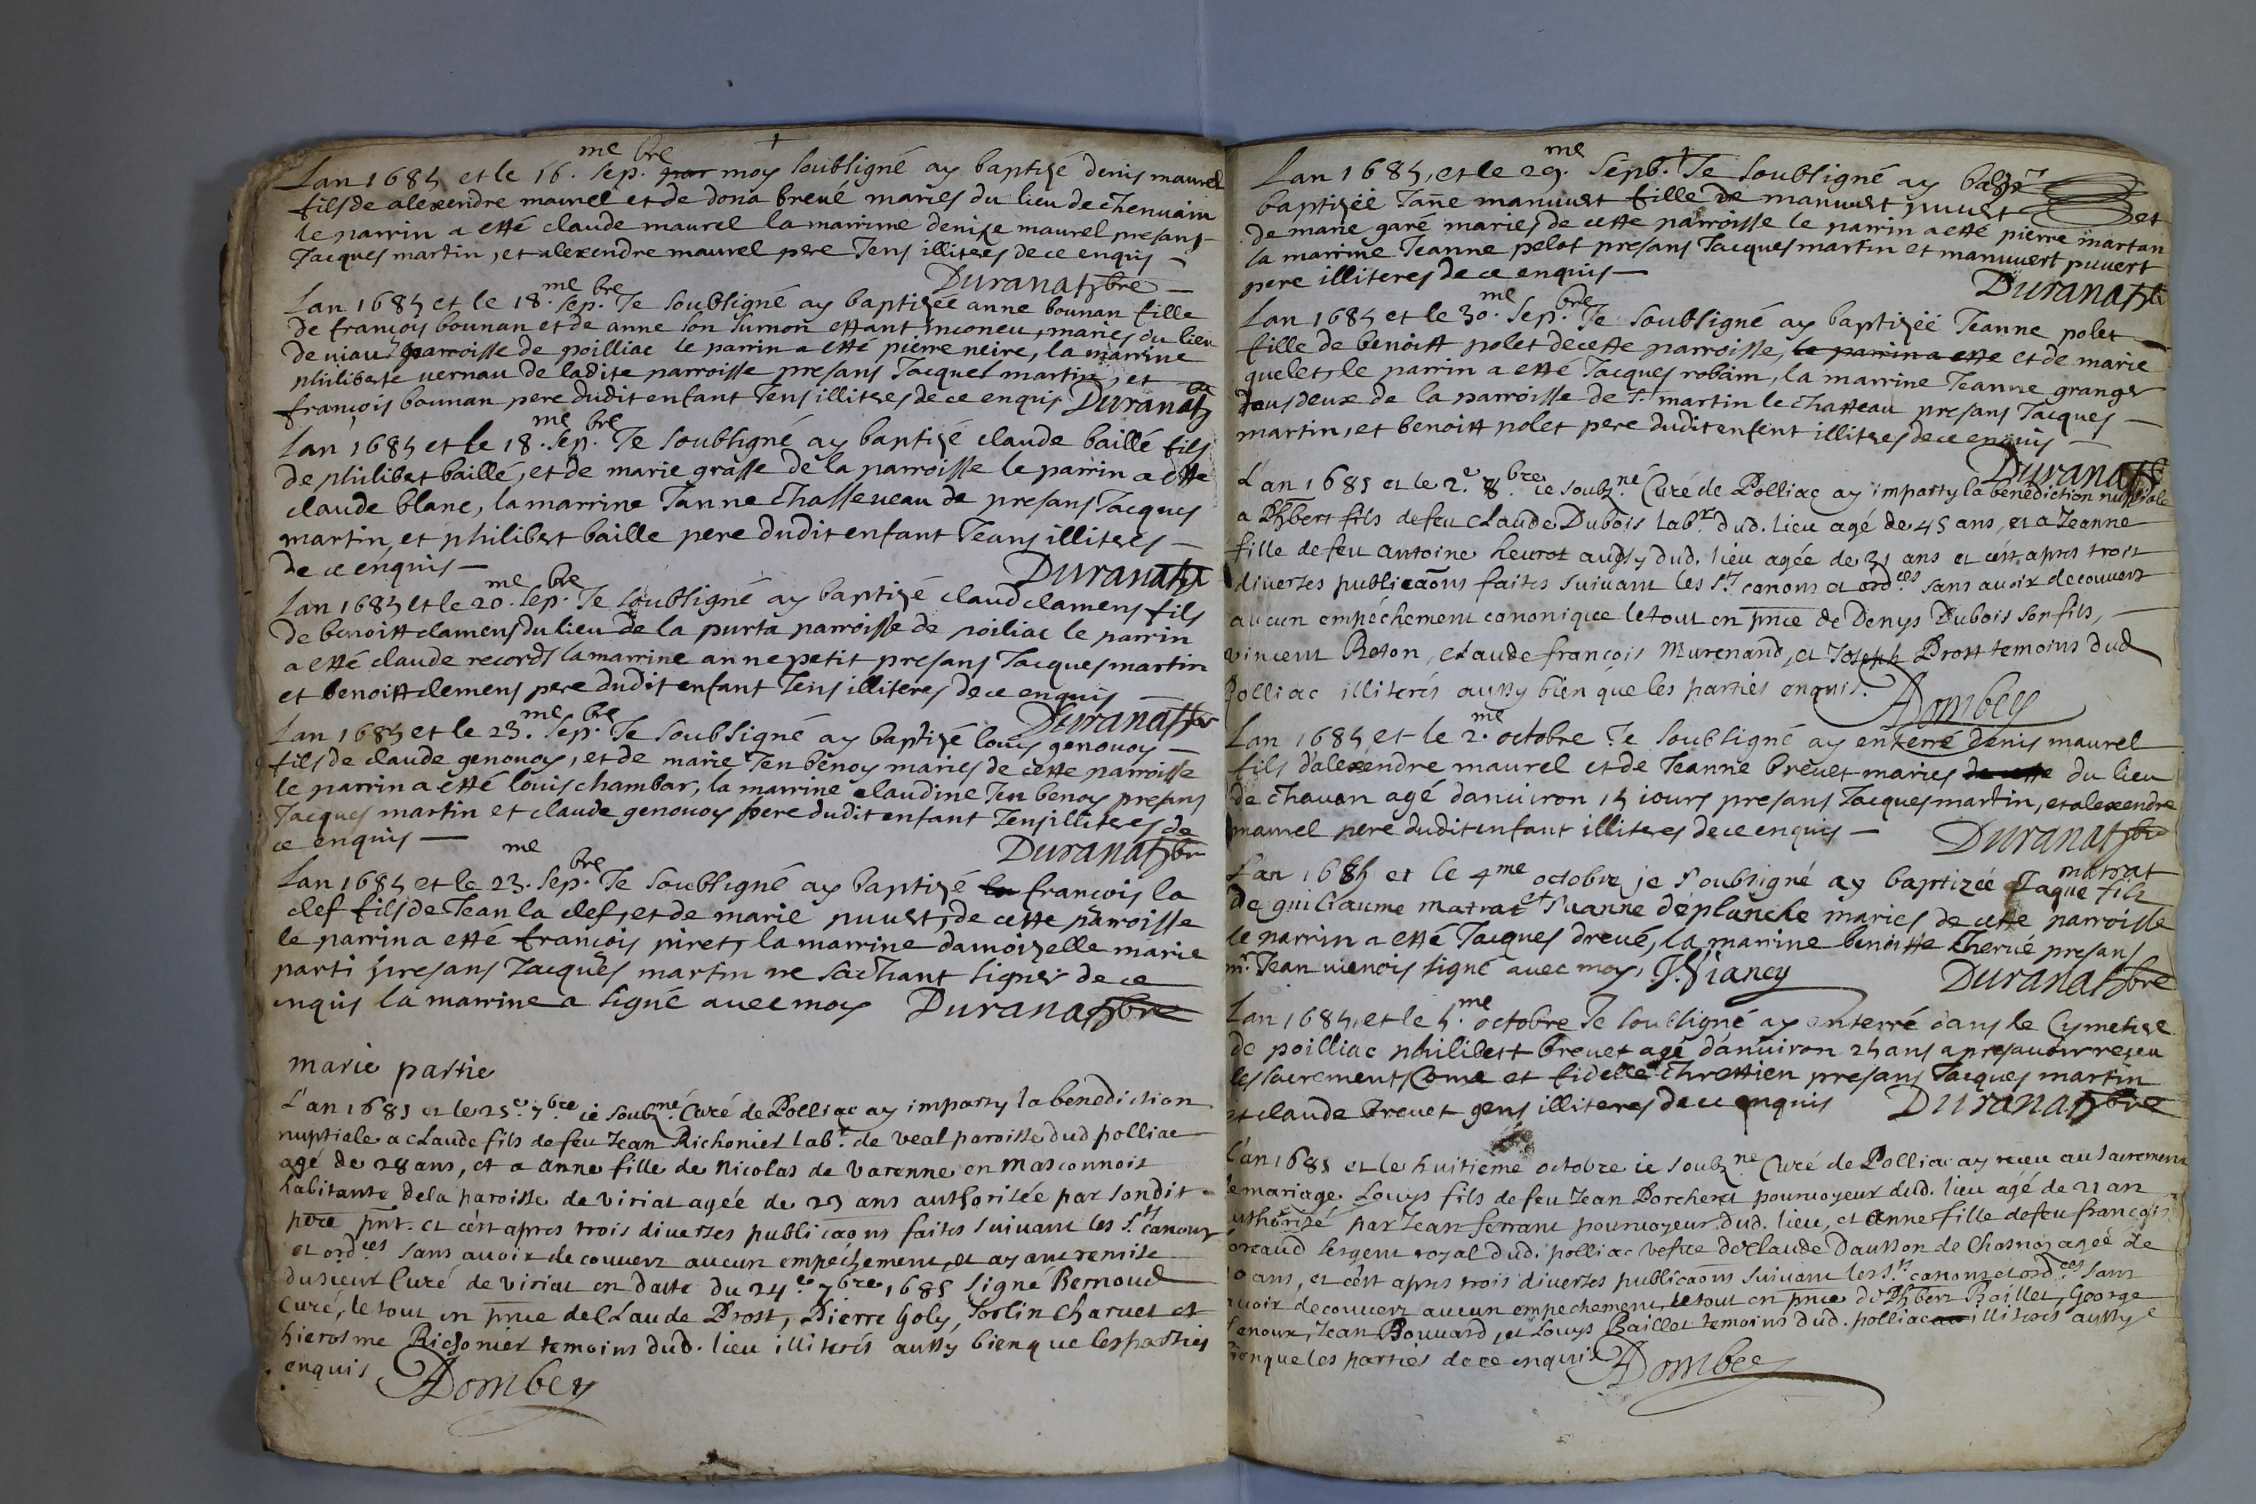 Lan 1685 et le 16.me Sep.bre par moy soubsigné ay baptizé denis maurel
fils de alexendre maurel et de dona breué mariés du lieu de chenuain
le parrin a etté claude maurel la marrine denize maurel presans
Jacques martin, et alexendre maurel pere Jens illitres de ce enquis
Duranat pbre
Lan 1685 et le 18.me Sep.bre Je soubsigné ay baptizée anne bounan fille
de françoy bounan et de anne son surnon ettant inconeu, mariés du lieu
de uiau parroisse de poilliac le parrin a etté pierre neire, la marrine
philiberte uernau de ladite parroisse presans Jacques martin, et
françois bounan pere dudit enfant Jens illitres de ce enquis Duranat
Lan 1685 et le 18.me Sep.bre Je soubsigné ay baptizé claude baillé fils
de philibert baillé, et de marie grasse de la parroisse le parrin a etté
claude blanc, la marrine Janne Chasseueau de presans Jacques
martin, et philibert baille pere dudit enfant Jeans illitres
de ce enquis
Duranat
Lan 1685 et le 20.me Sep.bre Je soubsigné ay baptizé claud clamens fils
de benoitt clamens du lieu de la purta parroisse de poiliac le parrin
a etté claude records la marrine anne petit presans Jacques martin
et benoitt clemens pere dudit enfant Jens illiteres de ce enquis
Duranat pbr
Lan 1685 et le 23.me Sep.bre Je soubsigné ay baptizé louis genouoy
fils de claude genouoy, et de marie Jenbenoy mariés de cette parroisse
le parrin a etté louis chambar, la marrine claudine Jenbenoy presans
Jacques martin et claude genouoy pere dudit enfant Jens illitres de
ce enquis
Duranat pbr
Lan 1685 et le 23.me Sep.bre Je soubsigné ay baptizé la francois la
clef fils de Jean la clef, et de marie puuert, de cette parroisse
le parrin a etté francois piret, la marrine damoizelle marie
parti presans Jacques martin ne sachant signer de ce
enquis la marrine a signé auec moy Duranat pbre
marie partie
L'an 1685 et le 25.e 7.bre ie soubz.né Curé de Polliac ay imparty la benediction
nuptiale a cLaude fils de feu Jean Richonier lab.r de veal paroisse dud polliac
agé de 28 ans, et a anne fille de Nicolas de Varenne en Masconnois
habitante de la paroisse de viriat agée de 23 ans authorisée par sondit
pere pnt. et c'est apres trois diuerses publicaons faites suiuant les S.ts canons
et ord.ces sans auoir decouuert aucun empéchement, et ayant remise
du sieur Curé de viriat en datte du 24.e 7.bre 1685 signé Bernoud
Curé, le tout en pnce de cLaude Prost, Pierre Goly, Jorlin Charuet et
hierosme Richonier temoins dud. lieu illiterés aussy bien que les parties
enquis ADombey
Lan 1685, et le 29.me Sepb. Je soubsigné ay
baptizée Janne manuert fille de manuert puuert et
de marie garé mariés de cette parroisse le parrin a etté pierre martan
la marrine Jeanne pelot presans Jacques martin et manuuert puuert
pere illiteres de ce enquis
Duranat pbr
Lan 1685 et le 30.me Sep.bre Je soubsigné ay baptizée Jeanne polet
fille de benoitt polet de cette parroisse, le parrin a ette et de marie
quelet, le parrin a etté Jacques robain, la marrine Jeanne granger
tous deux de la parroisse de st martin le chatteau presans Jacques
martin, et benoitt polet pere dudit enfent illitres de ce enquis
Duranat
L'an 1685 et le 2.e 8.bre ie soubz.né Curé de Polliac ay imparty la benediction nuptiale
a Phbert fils de feu cLaude Dubois lab.r dud. lieu agé de 45 ans, et a Jeanne
fille de feu antoine heurot aussy dud. lieu agée de 31 ans et c'est apres trois
diuerses publicaons faites suiuant les S.ts canons et ord.ces sans auoir decouuert
aucun empéchement cononique le tout en pnce de Denys Dubois son fils,
vincent Reton, cLaude françois Murenand, et Joseph Prost temoins dud
Polliac illiterés aussy bien que les parties enquis. ADombey
Lan 1685 et le 2.me octobre Je soubsigné ay enterré denis maurel
fils d'alexendre maurel et de Jeanne breuet mariés de cette du lieu
de chauan agé danuiron 15 iours presans Jacques martin, et alexendre
maurel pere dudit enfant illitres de ce enquis Duranat pbr
L'an 1685 et le 4me octobre je soubsigné ay baptizée Jaque matrat fils
de guillaume matrat et suanne déplanche mariés de cette parroisse
le parrin a etté Jacques dreué, la marrine benoitte Cherué presans
mr. Jean uienois signé auec moy, J. Viancy Duranat pbre
Lan 1685, et le 5.me octobre Je soubsigné ay anterré dans le Cymetire
de poilliac philibert breuet agé danuiron 25 ans apres auoir reseu
les sacrements Come et fidelle chrettien presans Jacques martin
et claude breuet gens illiteres de ce enquis Duranat pbre
L'an 1685 et le huitieme octobre ie soubz.ne Curé de Polliac ay receu au sacrement
de mariage Louys fils de feu Jean Porcheret pouruoyeur dud. lieu agé de 21 an
authorizé par Jean ferrant pouruoyeur dud. lieu, et Anne fille de feu françois
orcaud sergent royal dud. polliac vefue de cLaude Dausson de Chosnoz agée de
0 ans, et c'est apres trois diuerses publicaons suiuant les S.ts canons et ord.ces sans
auoir decouuert aucun empechement, le tout en pnce de Phbert Baillet, George
enoux, Jean Bouuard, et Louys Baillet temoins dud. polliac illiterés aussy
bien que les parties de ce enquis ADombey